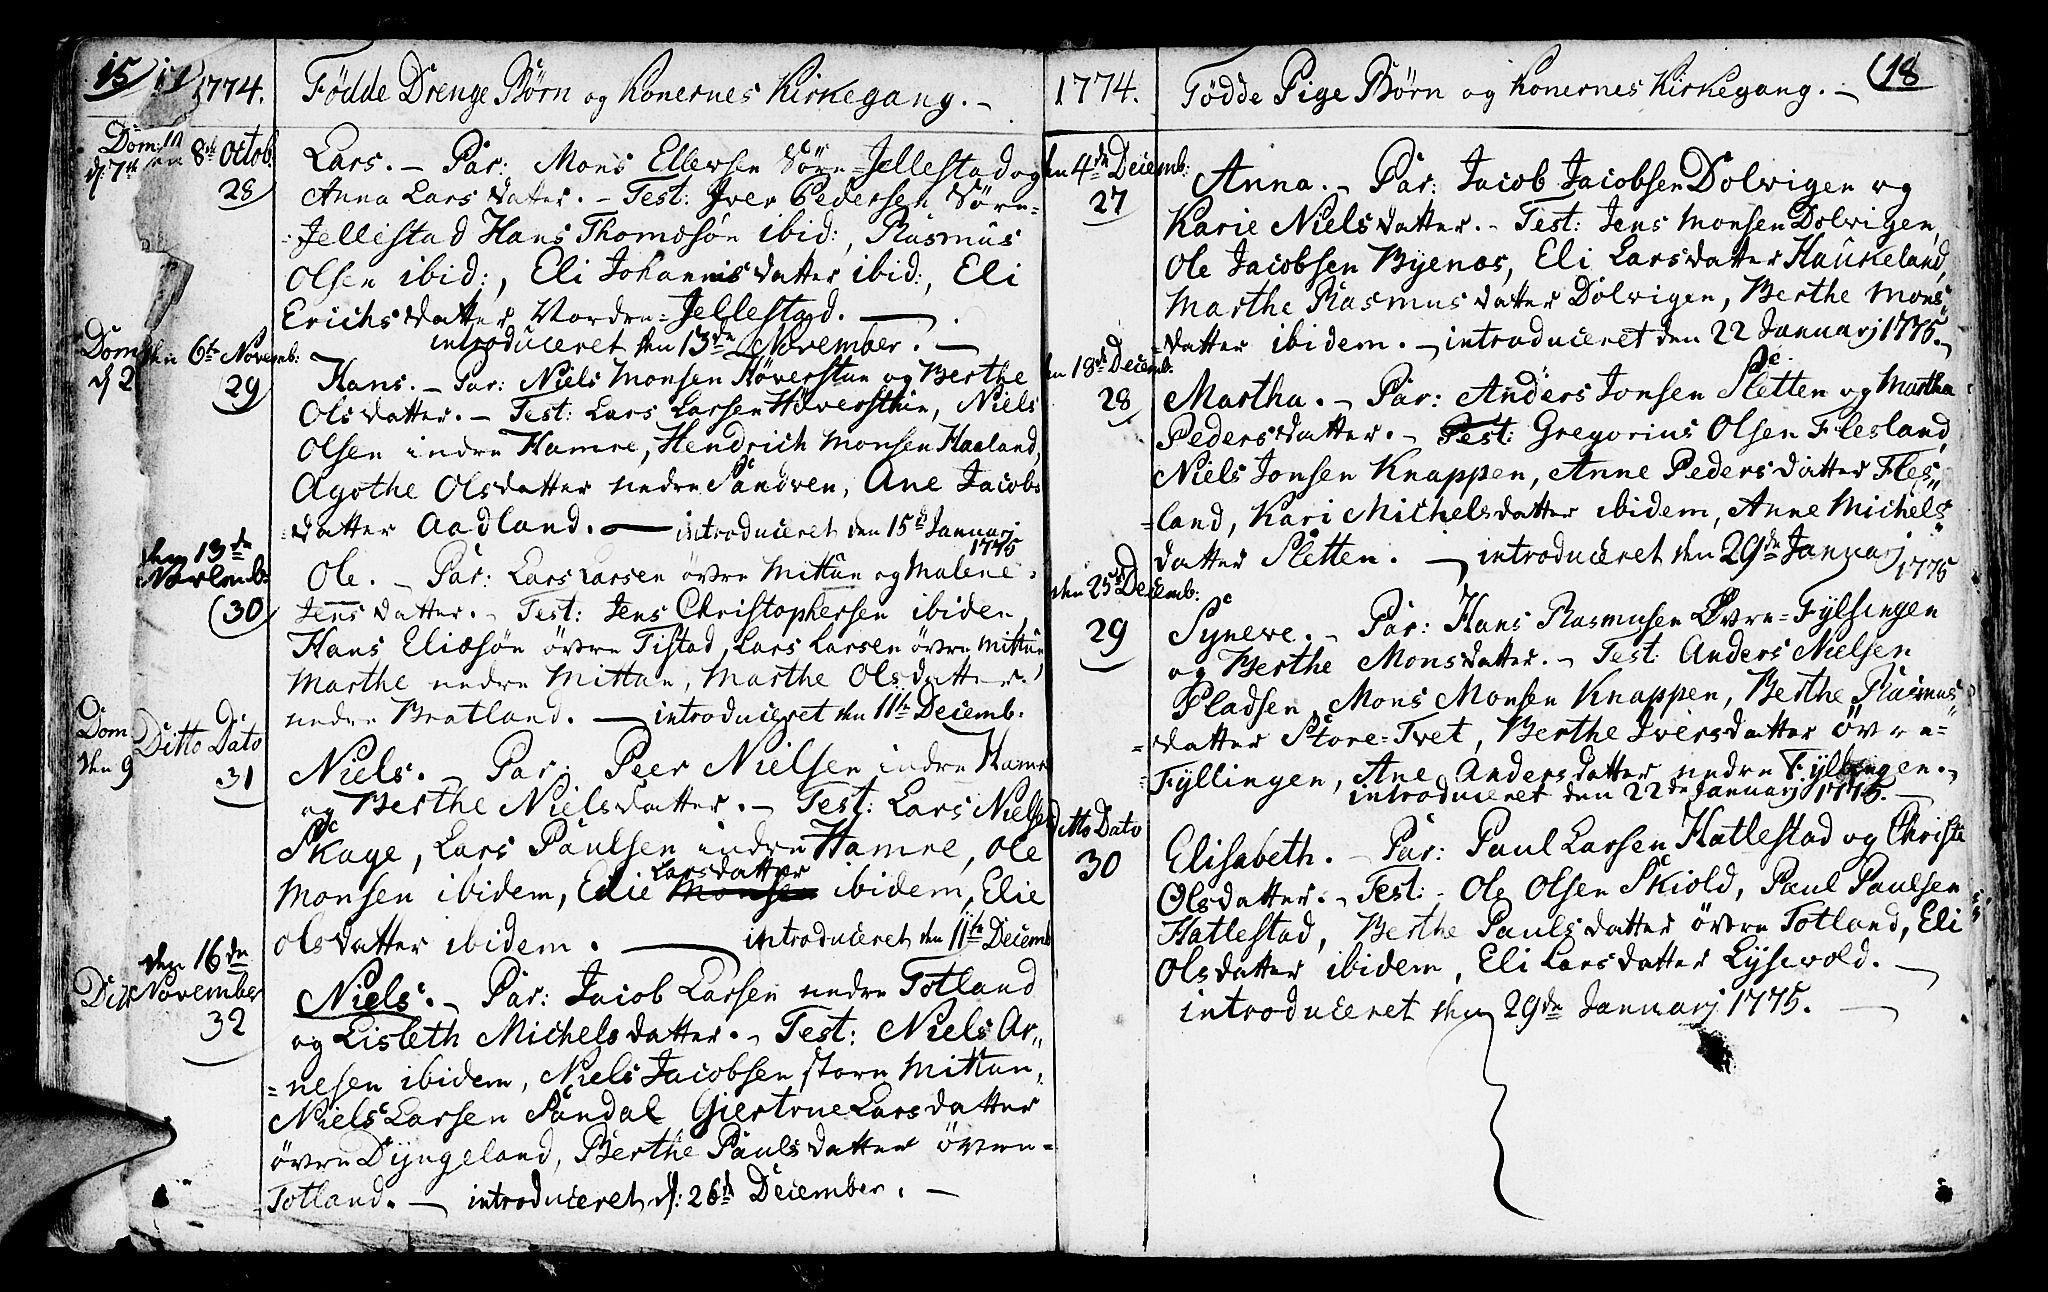 15 17 1774. Fødde Drenge Børn og Konernes Kirkegang. –
Dom: 10
d. 7de
den 8de Octob:
28
Lars. – Par: Mons Ellevsen Søre-Jellestad og
Anna Larsdatter. – Test: Iver Pedersen Søre-
-Jellestad Hans Thomesøn ibid:, Rasmus
Olsen ibid:, Eli Johannisdatter ibid:, Eli
Erichsdatter Nordre-Jellestad. –
introduceret den 13de November. –
Dom
d. 2
den 6te Novemb:
29
Hans. – Par: Niels Monsen Høversthun og Berthe
Olsdatter. – Test: Lars Larsen Høversthun, Niels
Olsen indre Hamre, Hendrich Monsen Haaland,
Agothe Olsdatter nedre Sandven, Ane Jacobs
-datter Aadland. – introduceret den 15de Januarj
1775
den 13de
Novemb:
30
Ole. – Par: Lars Larsen øvre Mittun og Malene
Jensdatter. – Test: Jens Christophersen ibidem,
Hans Eliæsøn øvre Tistad, Lars Larsen øvre Mittun,
Marthe nedre Mittun, Marthe Olsdatter
nedre Bratland. – introduceret den 11te Decemb:
Dom
den 9
Ditto Dato
31
Niels. – Par: Peer Nielsen indre Hamre
og Berthe Nielsdatter. – Test: Lars Nielsen
Skage, Lars Paulsen indre Hamre, Ole
Larsdatter
Monsen ibidem, Elie Monsen ibidem, Elie
Olsdatter ibidem. – introduceret den 11te Decemb
den 16de
November
32
Niels. – Par: Jacob Larsen nedre Totland
og Lisbeth Michelsdatter. – Test: Niels Ar„
-nesen ibidem, Niels Jacobsen store Mittun,
Niels Larsen Sandal, Giertrue Larsdatter
øvre Dyngeland, Berthe Paulsdatter øvre-
-Totland. – introduceret d: 26de December. –
1774. Fødde Pige Børn og Konernes Kirkegang. – 18
den 4de Decemb:
27
Anna. – Par: Jacob Jacobsen Dolvigen og
Karie Nielsdatter. – Test: Jens Monsen Dolvigen,
Ole Jacobsen Byenæs, Eli Larsdatter Haukeland,
Marthe Rasmusdatter Dolvigen, Berthe Mons„
-datter ibidem. – introduceret den 22 Januarj 1775. –
den 18de Decemb:
28
Martha. – Par: Anders Jonsen Sletten og Martha
Pedersdatter. – Test: Gregorius Olsen Flesland,
Niels Jonsen Knappen, Anne Pedersdatter Fles„
-land, Kari Michelsdatter ibidem, Anne Michels„
datter Sletten. – introduceret den 29de Januarj
1775
den 25de Decemb:
29
Syneve. – Par: Hans Rasmusen Øvre-Fyllingen
og Berthe Monsdatter. – Test: Anders Nielsen
Pladsen, Mons Monsen Knappen, Berthe Rasmus„
-datter Store-Tvet, Berthe Iversdatter øvre-
Fyllingen, Ane Andersdatter nedre Fyllingen. –
introduceret den 22de Januarj 1775. –
Ditto Dato
30
Elisabeth. – Par: Paul Larsen Hatlestad og Christi
Olsdatter. – Test: Ole Olsen Skiold, Paul Paulsen
Hatlestad, Berthe Paulsdatter øvre Totland, Eli
Olsdatter ibidem, Eli Larsdatter Lysevold. –
introduceret den 29de Januarj 1775. –